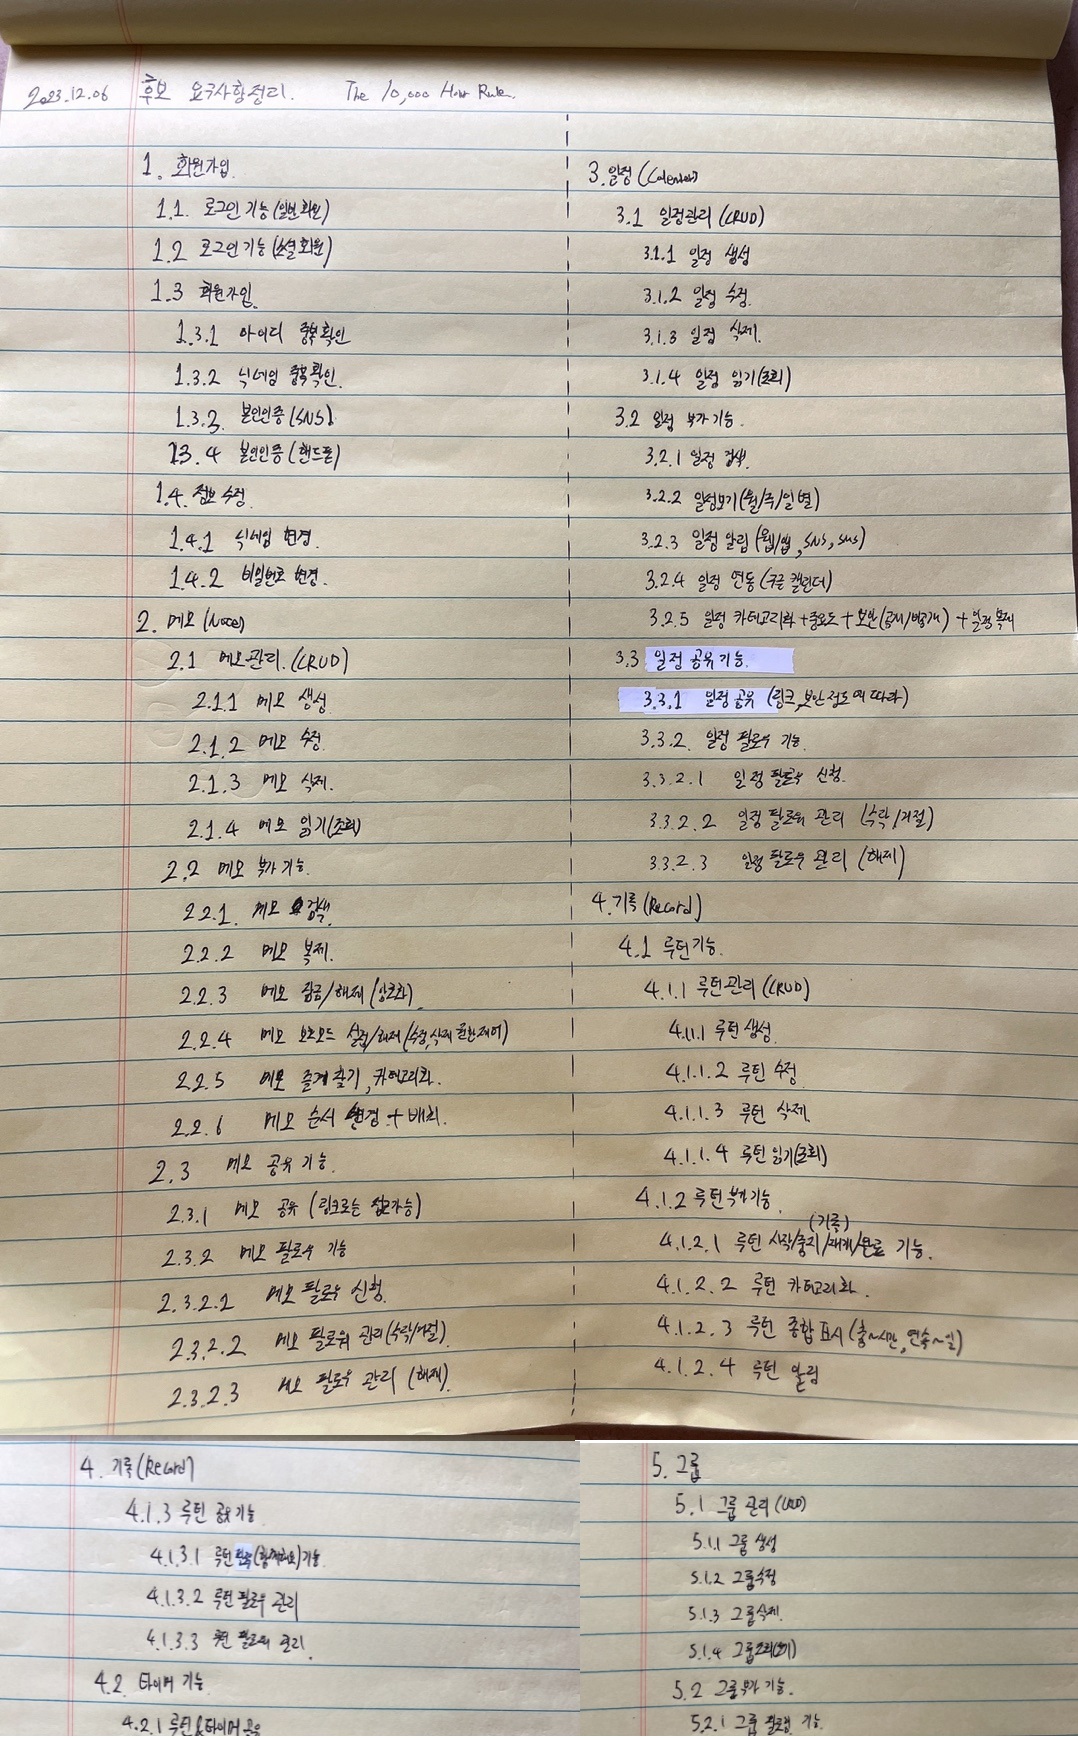 2023.12.06 후보 요구사항정리. The 10,000 Hour Rule.
1. 회원가입
1.1. 로그인 기능 (일반회원)
1.2 로그인 기능 (소셜회원)
1.3 회원가입
1.3.1 아이디 중복확인
1.3.2 닉네임 중복확인.
1.3.3. 본인인증 (SNS)
1.3.4 본인인증 (핸드폰)
1.4. 정보 수정
1.4.1 닉네임 변경
1.4.2 비밀번호 변경.
2. 메모 (Note)
2.1 메모관리. (CRUD)
2.1.1 메모 생성
2.1.2 메모 수정
2.1.3 메모 삭제.
2.1.4 메모 읽기(조회)
2.2 메모 부가 기능.
2.2.1. 메모 검색
2.2.2 메모 복제.
2.2.3 메모 잠금/해제 (암호화)
2.2.4 메모 보호모드 설정/해제 (수정,삭제 권한제어)
2.2.5 메모 즐겨찾기, 카테고리화.
2.2.6 메모 순서 변경 + 배치.
2.3 메모 공유 기능.
2.3.1 메모 공유 (링크로는 접근가능)
2.3.2 메모 필로우 기능
2.3.2.1 메모 필로우 신청
2.3.2.2 메모 필로워 관리 (수락/거절)
2.3.2.3 메모 필로우 관리 (해제)
3. 일정 (Calendar)
3.1 일정관리 (CRUD)
3.1.1 일정 생성
3.1.2 일정 수정.
3.1.3 일정 삭제.
3.1.4 일정 읽기(조회)
3.2 일정 부가 기능.
3.2.1 일정 검색.
3.2.2 일정보기 (월/주/일 별)
3.2.3 일정 알림 (웹/앱, SNS, sms)
3.2.4 일정 연동 (구글 캘린더)
3.2.5 일정 카테고리화 + 중요도 + 보안 (공개/비공개) + 일정 복제
3.3 일정 공유기능.
3.3.1 일정 공유 (링크, 보안 정도에 따라)
3.3.2. 일정 필로우 기능
3.3.2.1 일정 필로우 신청.
3.3.2.2 일정 필로워 관리 (수락/거절)
3.3.2.3 일정 필로우 관리 (해제)
4. 기록 (Record)
4.1 루틴기능.
4.1.1 루틴관리 (CRUD)
4.1.1.1 루틴 생성
4.1.1.2 루틴 수정
4.1.1.3 루틴 삭제
4.1.1.4 루틴 읽기(조회)
4.1.2 루틴부가기능
(기록)
4.1.2.1 루틴 시작/중지/재개/완료 기능.
4.1.2.2 루틴 카테고리화.
4.1.2.3 루틴 종합 표시 (총~시간, 연속~일)
4.1.2.4 루틴 알림
4. 기록 (Record)
4.1.3 루틴 공유 기능
4.1.3.1 루틴 (함께해요) 기능
4.1.3.2 루틴 필로우 관리
4.1.3.3 루틴 필로워 관리.
4.2 타이머 기능
4.2.1 루틴&타이머 공유
5. 그룹
5.1 그룹 관리 (CRUD)
5.1.1 그룹 생성
5.1.2 그룹 수정
5.1.3 그룹 삭제.
5.1.4 그룹 조회(읽기)
5.2 그룹 부가 기능.
5.2.1 그룹 기능.